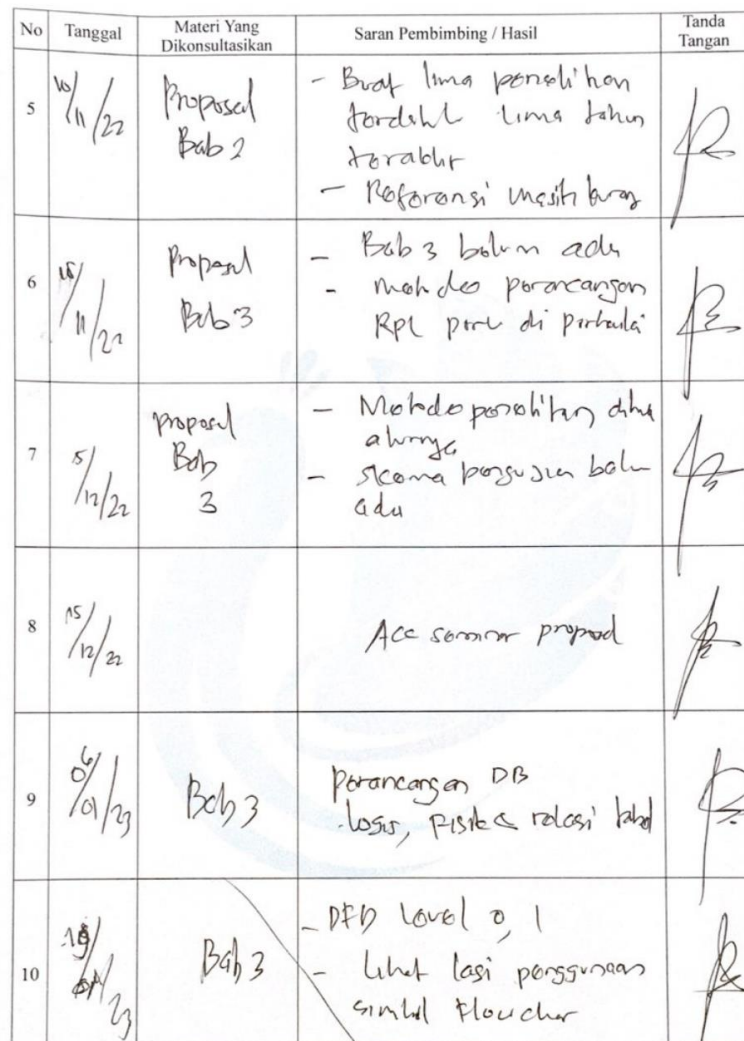 No Tanggal Materi Yang Dikonsultasikan Saran Pembimbing / Hasil Tanda Tangan
5 10/11/22 Proposal Bab 2
- Buat lima penelitian
terdahulu lima tahun
terakhir
- Referensi masih kurang
6 15/11/22 Proposal Bab 3
- Bab 3 belum ada
- metode perancangan
RPL perlu di perbaiki
7 5/12/22 proposal Bab 3
- Metode penelitian
alurnya
- skema pengujian belum
ada
8 15/12/22
Acc seminar proposal
9 06/01/23 Bab 3
perancangan DB
logis, fisik & relasi tabel
10 /23 Bab 3
- DFD Level 0, 1
- Lihat lagi penggunaan
simbol flowchar